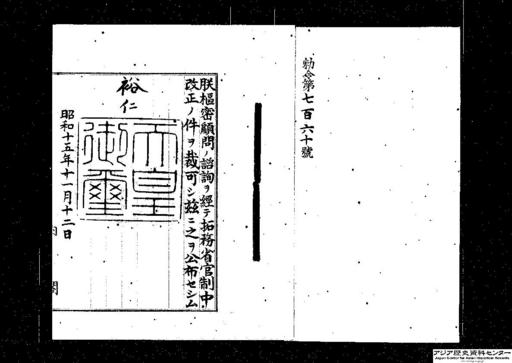 勅令第七百六十號
朕樞密顧問ノ諮詢ヲ經テ拓務省官制中
改正ノ件ヲ裁可シ茲ニ之ヲ公布セシム
裕仁
天皇
御璽
昭和十五年十一月十二日
アジア歴史資料センター
Japan Center for Asian Historical Records